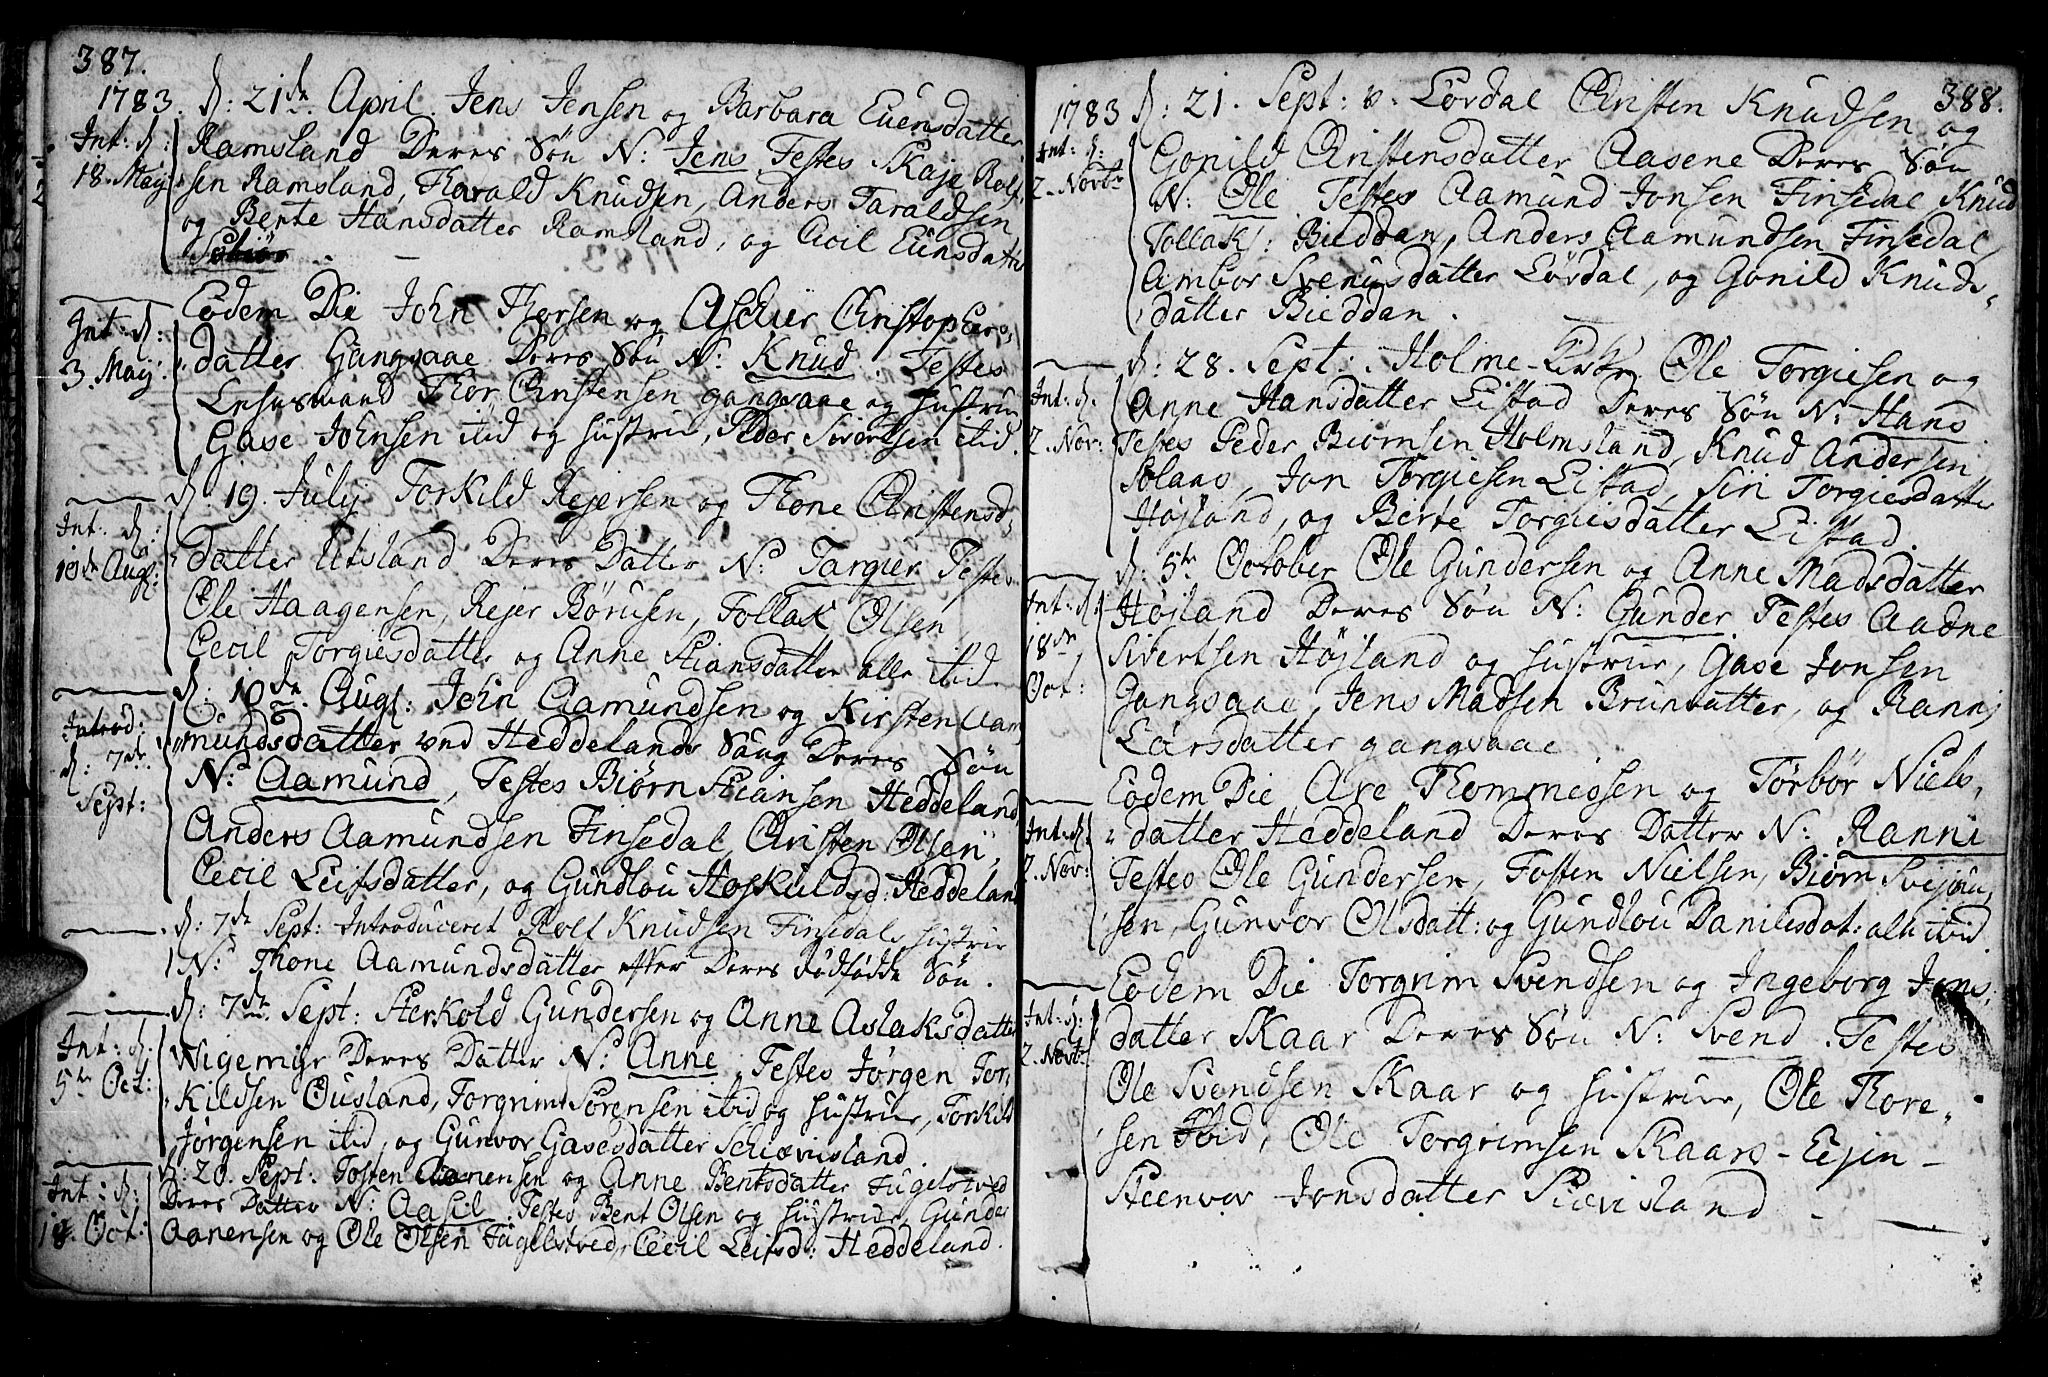 387.
1783. d: 21de April. Jens Jensen og Barbara Euensdatter
Int: d:
18. Maij
Ramsland Deres Søn N: Jens. Testes Skaje Rolf-
sen Ramsland, Harald Knudsen, Anders Taraldsen
og Berte Hansdatter Ramsland, og Cicil Eunsdatter
Eodem Die John Thorsen og Aschier Christophers-
Int: d:
3. Maij:
datter Gangvaae Deres Søn N: Knud. Testes
Lensmand Thor Christensen gangvaae og hustrue
Gase Johnsen itid og hustrue, Peder Sivertsen itid.
d: 19. Julij Torkild Rejersen og Thone Christensd-
Int. d:
10de Augs:
datter Utsland Deres Datter N: Targier Testes
Ole Haagensen, Rejer Børusen, Tollak Olsen,
Cecil Torgiesdatter og Anne Stiansdatter alle itid.
d: 10de Augs: John Aamundsen og Kirsten Aam
Introd:
d: 7de
Sept:
mundsdatter ved Heddelands Saug Deres Søn
N: Aamund, Testes Biørn Stiansen Heddeland,
Anders Aamundsen Finsedal, Christen Olsen,
Cecil Leifsdatter, og Gundlou Hoskuldsd: Heddeland
d: 7de Sept: Introduceret Rolf Knudsen Finsedals hustrue
N: Thone Aamundsdatter efter Deres dødfødde Søn.
d: 7de Sept: Sterkold Gundersen og Anne Aslaksdatter
Int: d:
5te Oct:
Wigemyr Deres Datter N: Anne. Testes Jørgen Tor-
kildsen Ousland, Torgrim Sørensen itid og hustrue, Torkild
Jørgensen itid, og Gunvor Gasesdatter Schiævisland.
d: 20. Sept: Tosten Aanensen og Anne Bentsdatter Fugelstved
Int: d:
18. Oct:
Deres Datter N: Aasil. Testes Bent Olsen og hustrue, Gunder
Aanensen og Ole Olsen Fugelstved, Cecil Leifsd: Heddeland.
388.
1783 d: 21. Sept: v. Lørdal Christen Knudsen og
Int: d:
2. Novbr
Gonild Christensdatter Aasene Deres Søn
N: Ole Testes Aamund Jonsen Finsedal Knud
Tollaks: Bieddan, Anders Aamundsen Finsedal,
Ambor Svenusdatter Lørdal, og Gonild Knuds-
datter Bieddan.
d: 28. Sept: Holme-Kirke Ole Torgiesen og
Int: d.
2. Nov:
Anne Hansdatter Leistad Deres Søn N: Hans.
Testes Peder Biørnsen Holmsland, Knud Andersen
Solaas, Jon Torgiesen Leistad, Siri Torgiesdatter
Højland, og Berte Torgiesdatter Leistad.
d: 5te October Ole Gundersen og Anne Madsdatter
Int: d:
18de
Oct:
Højland Deres Søn N: Gunder Testes Aadne
Sivertsen Højland og hustrue, Gase Jonsen
Gangvaae, Jens Madsen Brunvatter, og Rannj
Larsdatter gangvaae
Eodem Die Are Thommesen og Torbør Niels-
Int: d:
2. Nov:
datter Heddeland Deres Datter N: Ranni
Testes Ole Gundersen, Tosten Nielsen, Biørn Svejnu-
sen, Gunvor Olsdatt: og Gundlou Danilsdat: alle itid.
Eodem Die Torgrim Svendsen og Ingeborg Jons-
Int: d:
2. Novbr
datter Skaar Deres Søn N: Svend. Testes
Ole Svendsen Skaar og hustrue, Ole Thore-
sen Ibid, Ole Torgrimsen Skaars-Ejen-
Steenvor Jonsdatter Skievisland.